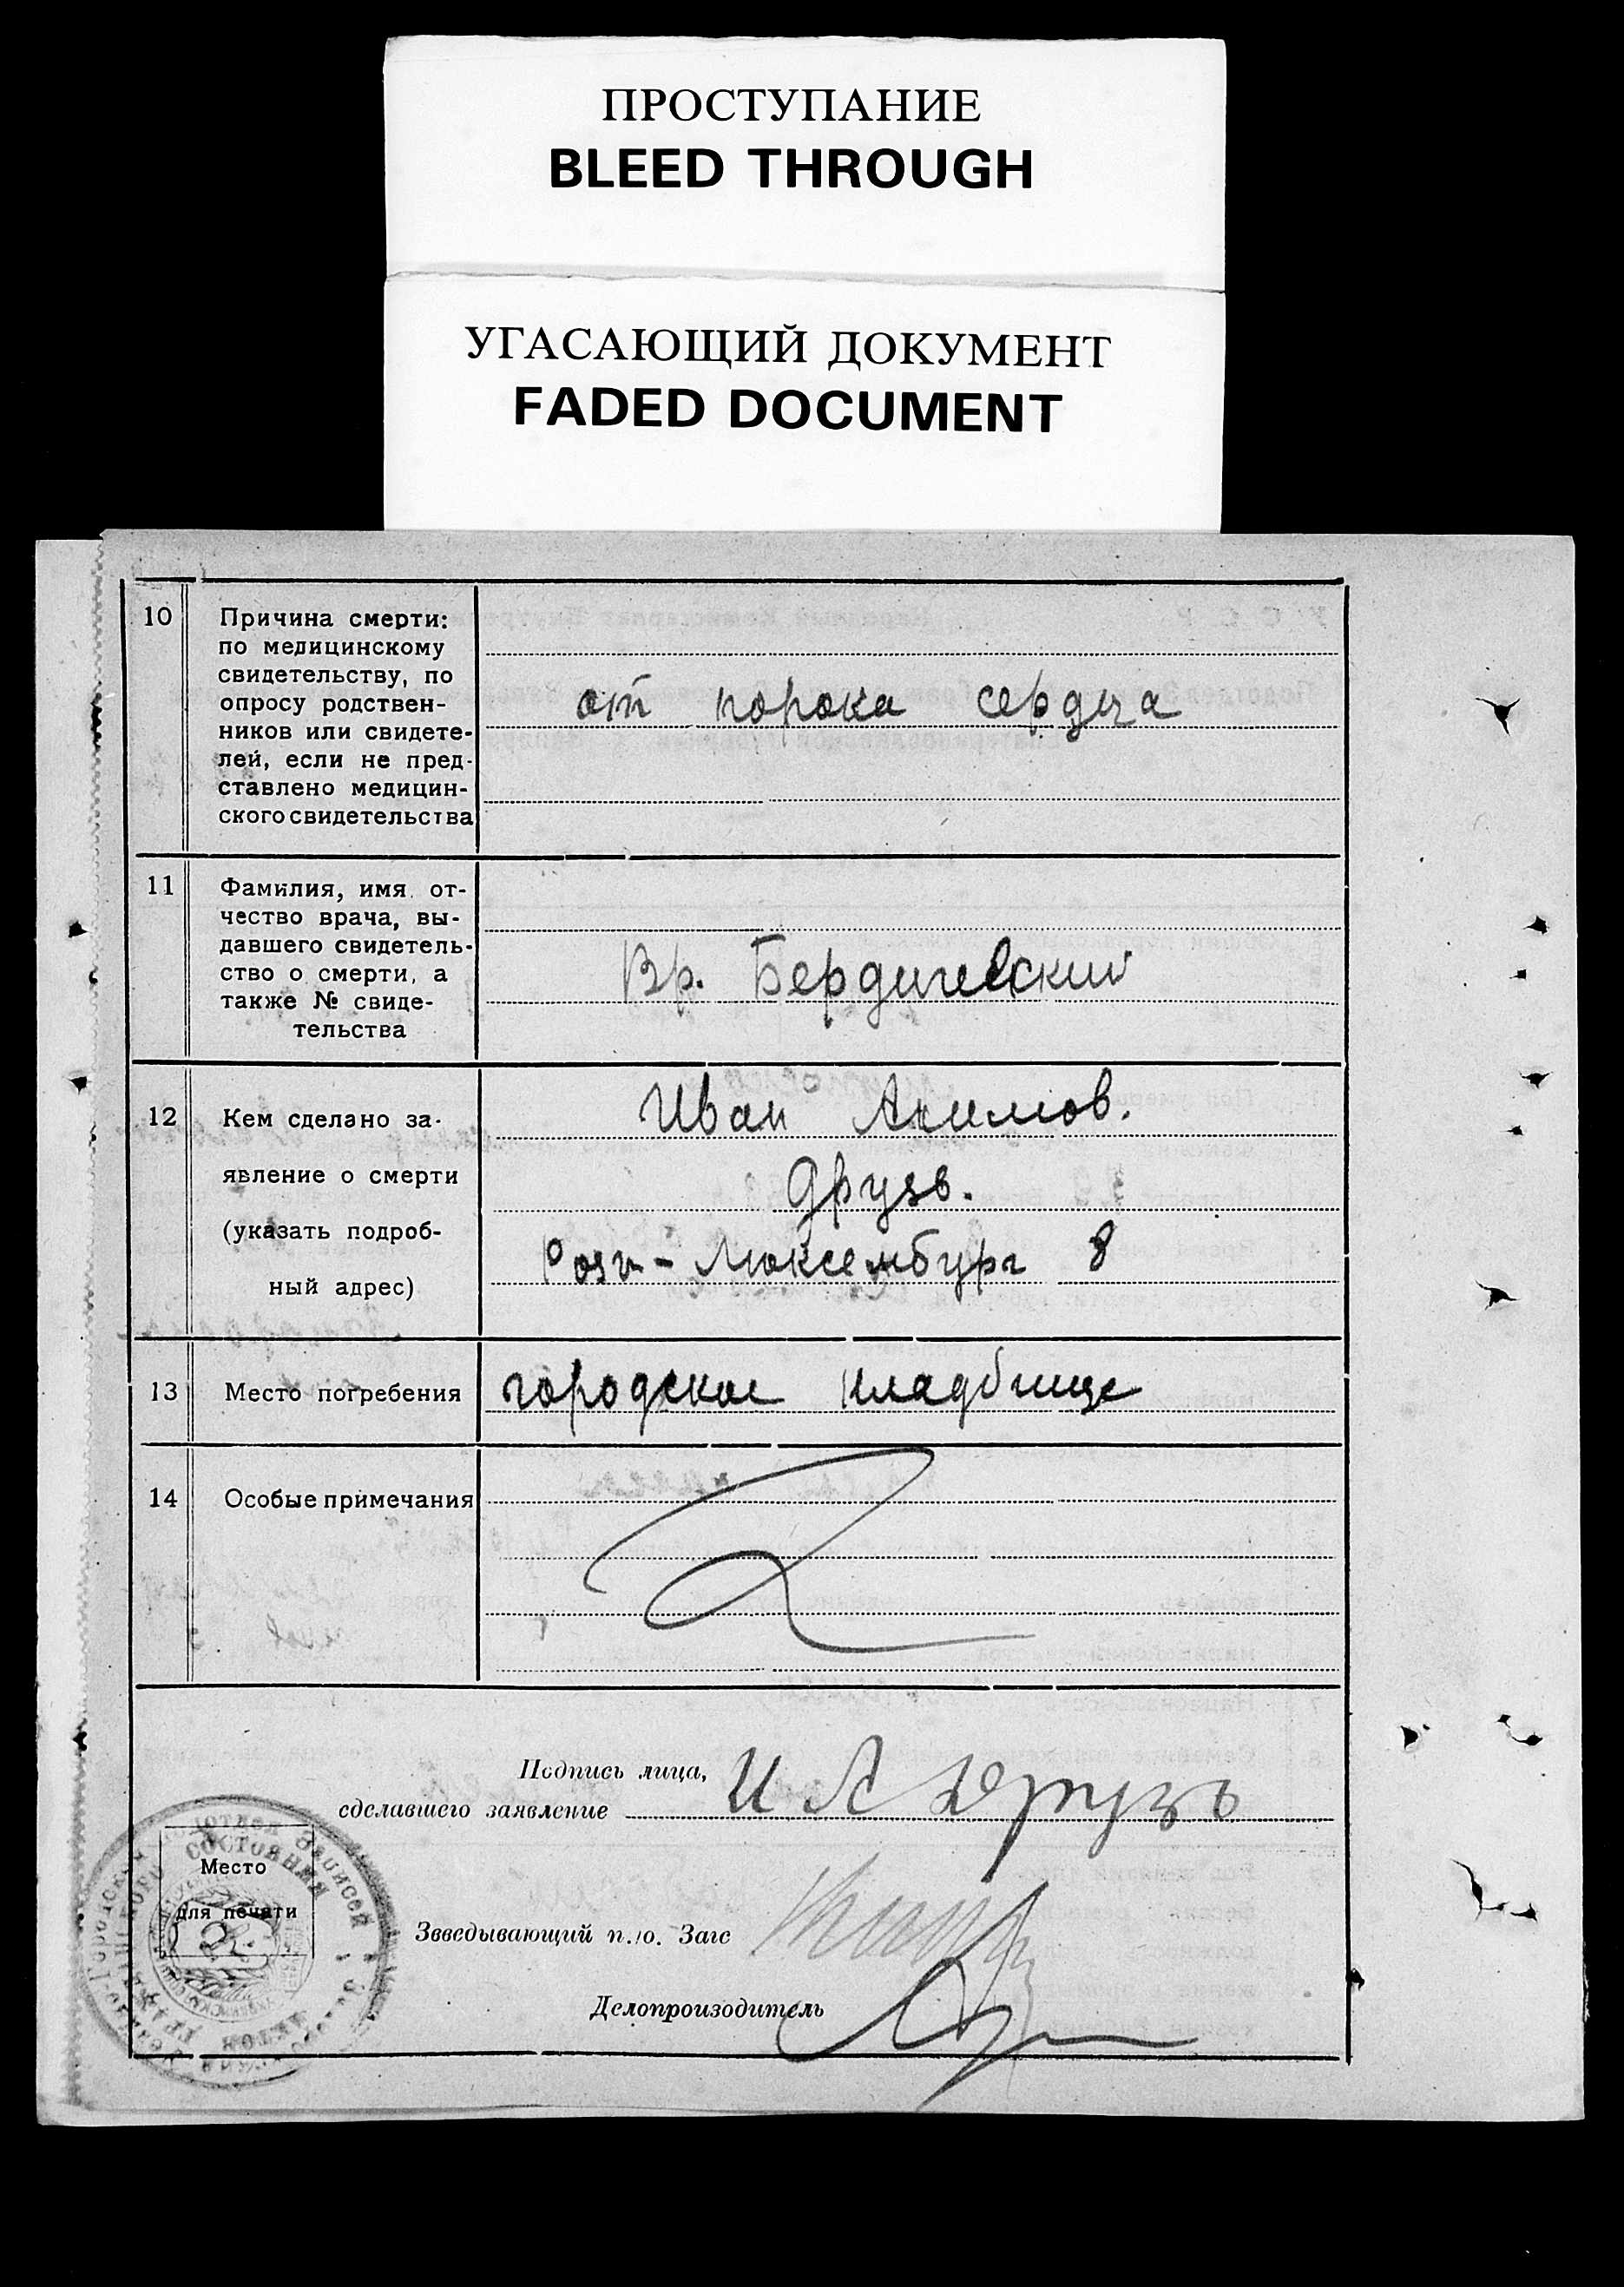 ПРОСТУПАНИЕ
BLEED THROUGH
УГАСАЮЩИЙ ДОКУМЕНТ
FADED DOCUMENT
10
Причина смерти:
по медицинскому
свидетельству, по
опросу родствен-
ников или свидете-
лей, если не пред-
ставлено медицин-
ского свидетельства
от порока сердца
11
Фамилия, имя от-
чество врача, вы-
давшего свидетель-
ство о смерти, а
также № свиде-
тельства
Вр. Бердичевский
12
Кем сделано за-
явление о смерти
(указать подроб-
ный адрес)
Иван Акимов.
Друзь.
Розы-Люксембург 8
13
Место погребения
городское кладбище
14
Особые примечания
Подпись лица,
сделавшего заявление
И А Друзь
Место
для печати
Зведывающий п./о. Загс
Делопроизводитель